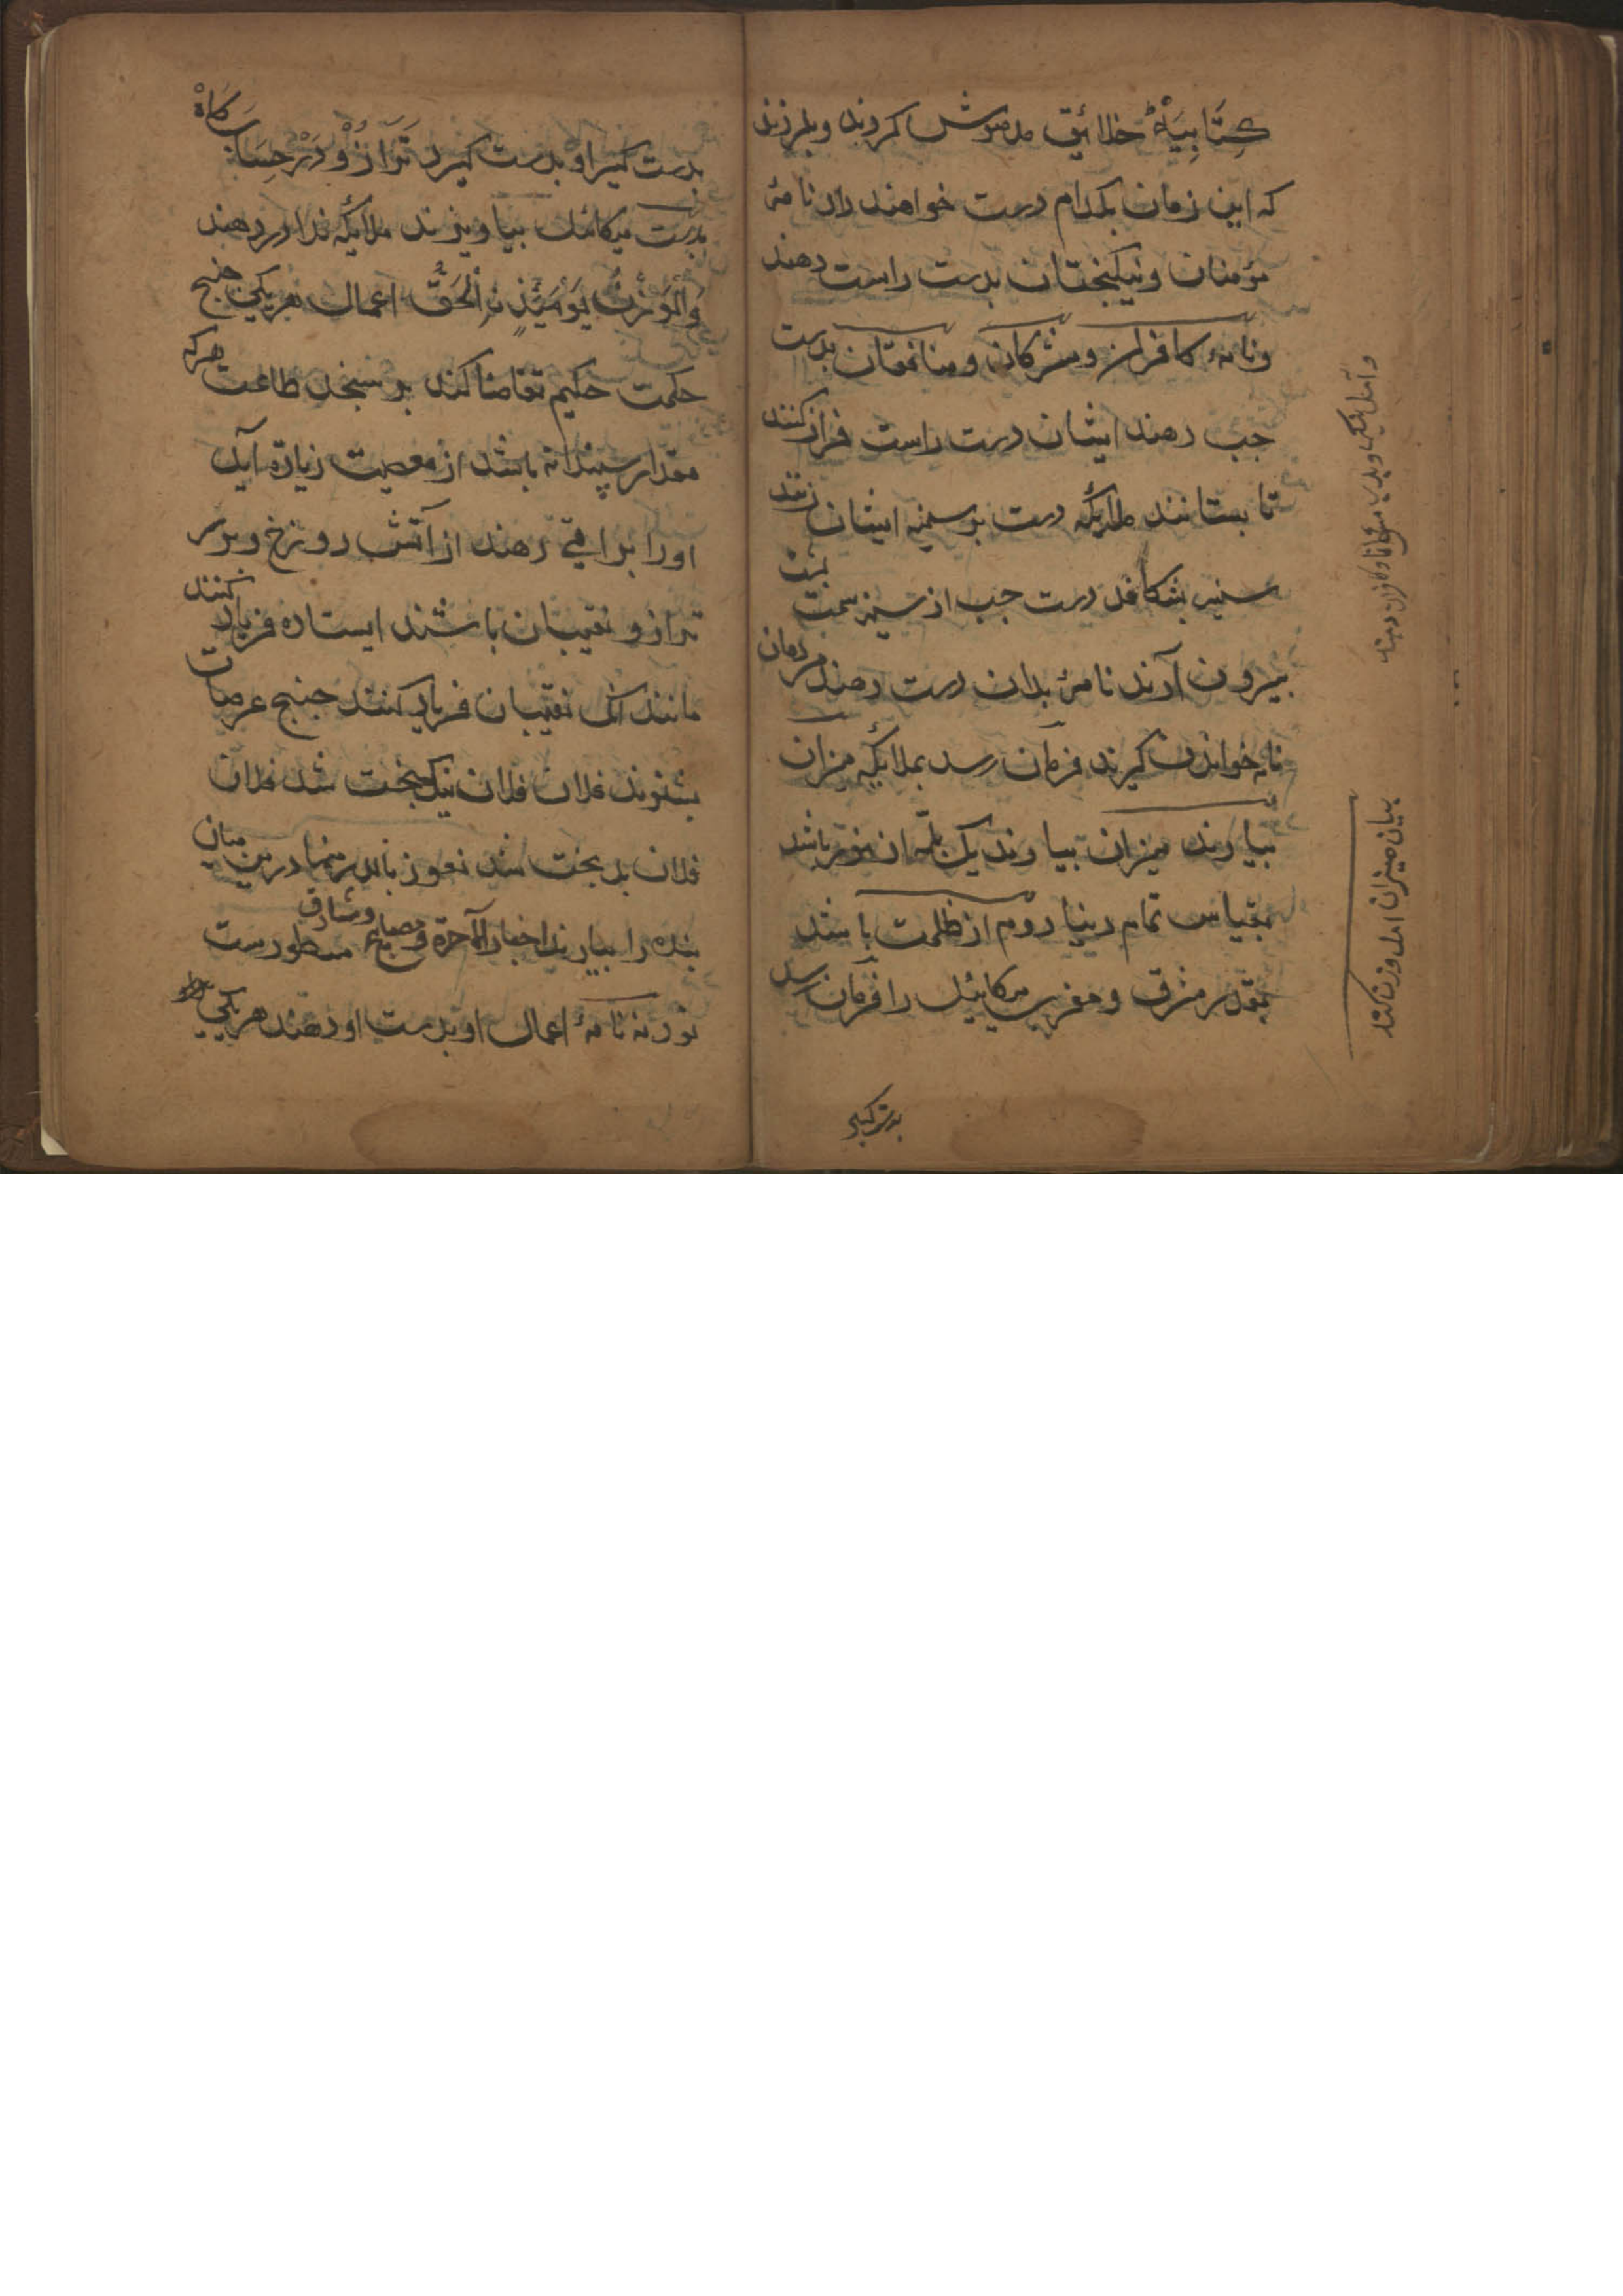 كِتَابِيَهْ خلائق مدهوش كردند وبلرزند
كه اين زمان بكدام دست خواهند داد نامۀ
مؤمنان ونيكبختان بدست راست دهند
ونامۀ كافران ومشركان ومنافقان بدست
جب دهند ايشان دست راست فراز كنند
تا بستانند ملايكه دست بر سينه ايشان زنند
سينه بشكافد دست جب از سينه سمت پشت
بيرون آرند نامۀ بدان دست دهند مردمان
نامه خواندن كيرند فرمان رسد بملايكه ميزان
بيارند ميزان بيارند يك پله از نور باشد
بمقياس تمام دنيا دوم از ظلمت باشد
بمقدار مشرق ومغرب ميكائيل را فرمان رسد
بيان ميزان
بدست كير او بدست كيرد تَرَازُو دَرْ حِسَاب كَاهْ
بدست ميكائيل بياويزند ملايكه ندا در دهند
وَالْوَزْنُ يَوْمَئِذٍ نِ الْحَقُّ اعمال هريكى
حكمت حكيم تقاضا كند بر سنجد طاعت هركه
مقدار سپندانه باشد از معصيت زياده آيد
اورا براتى دهند از آتش دوزخ وبر سر
ترازو نقيبان باشند ايستاده فرياد كنند
مانند آنك نقيبان فرياد كنند جنيج عرصات
بشنوند فلان فلان نيك بخت شد فلان
فلان بد بخت شد نعوذ بالله منها درين ميان
بنده را بيارند اخبار الآخرة ومصابيح ومشارق مسطورست
نود نه نامۀ اعمال او بدست او دهند هريكى